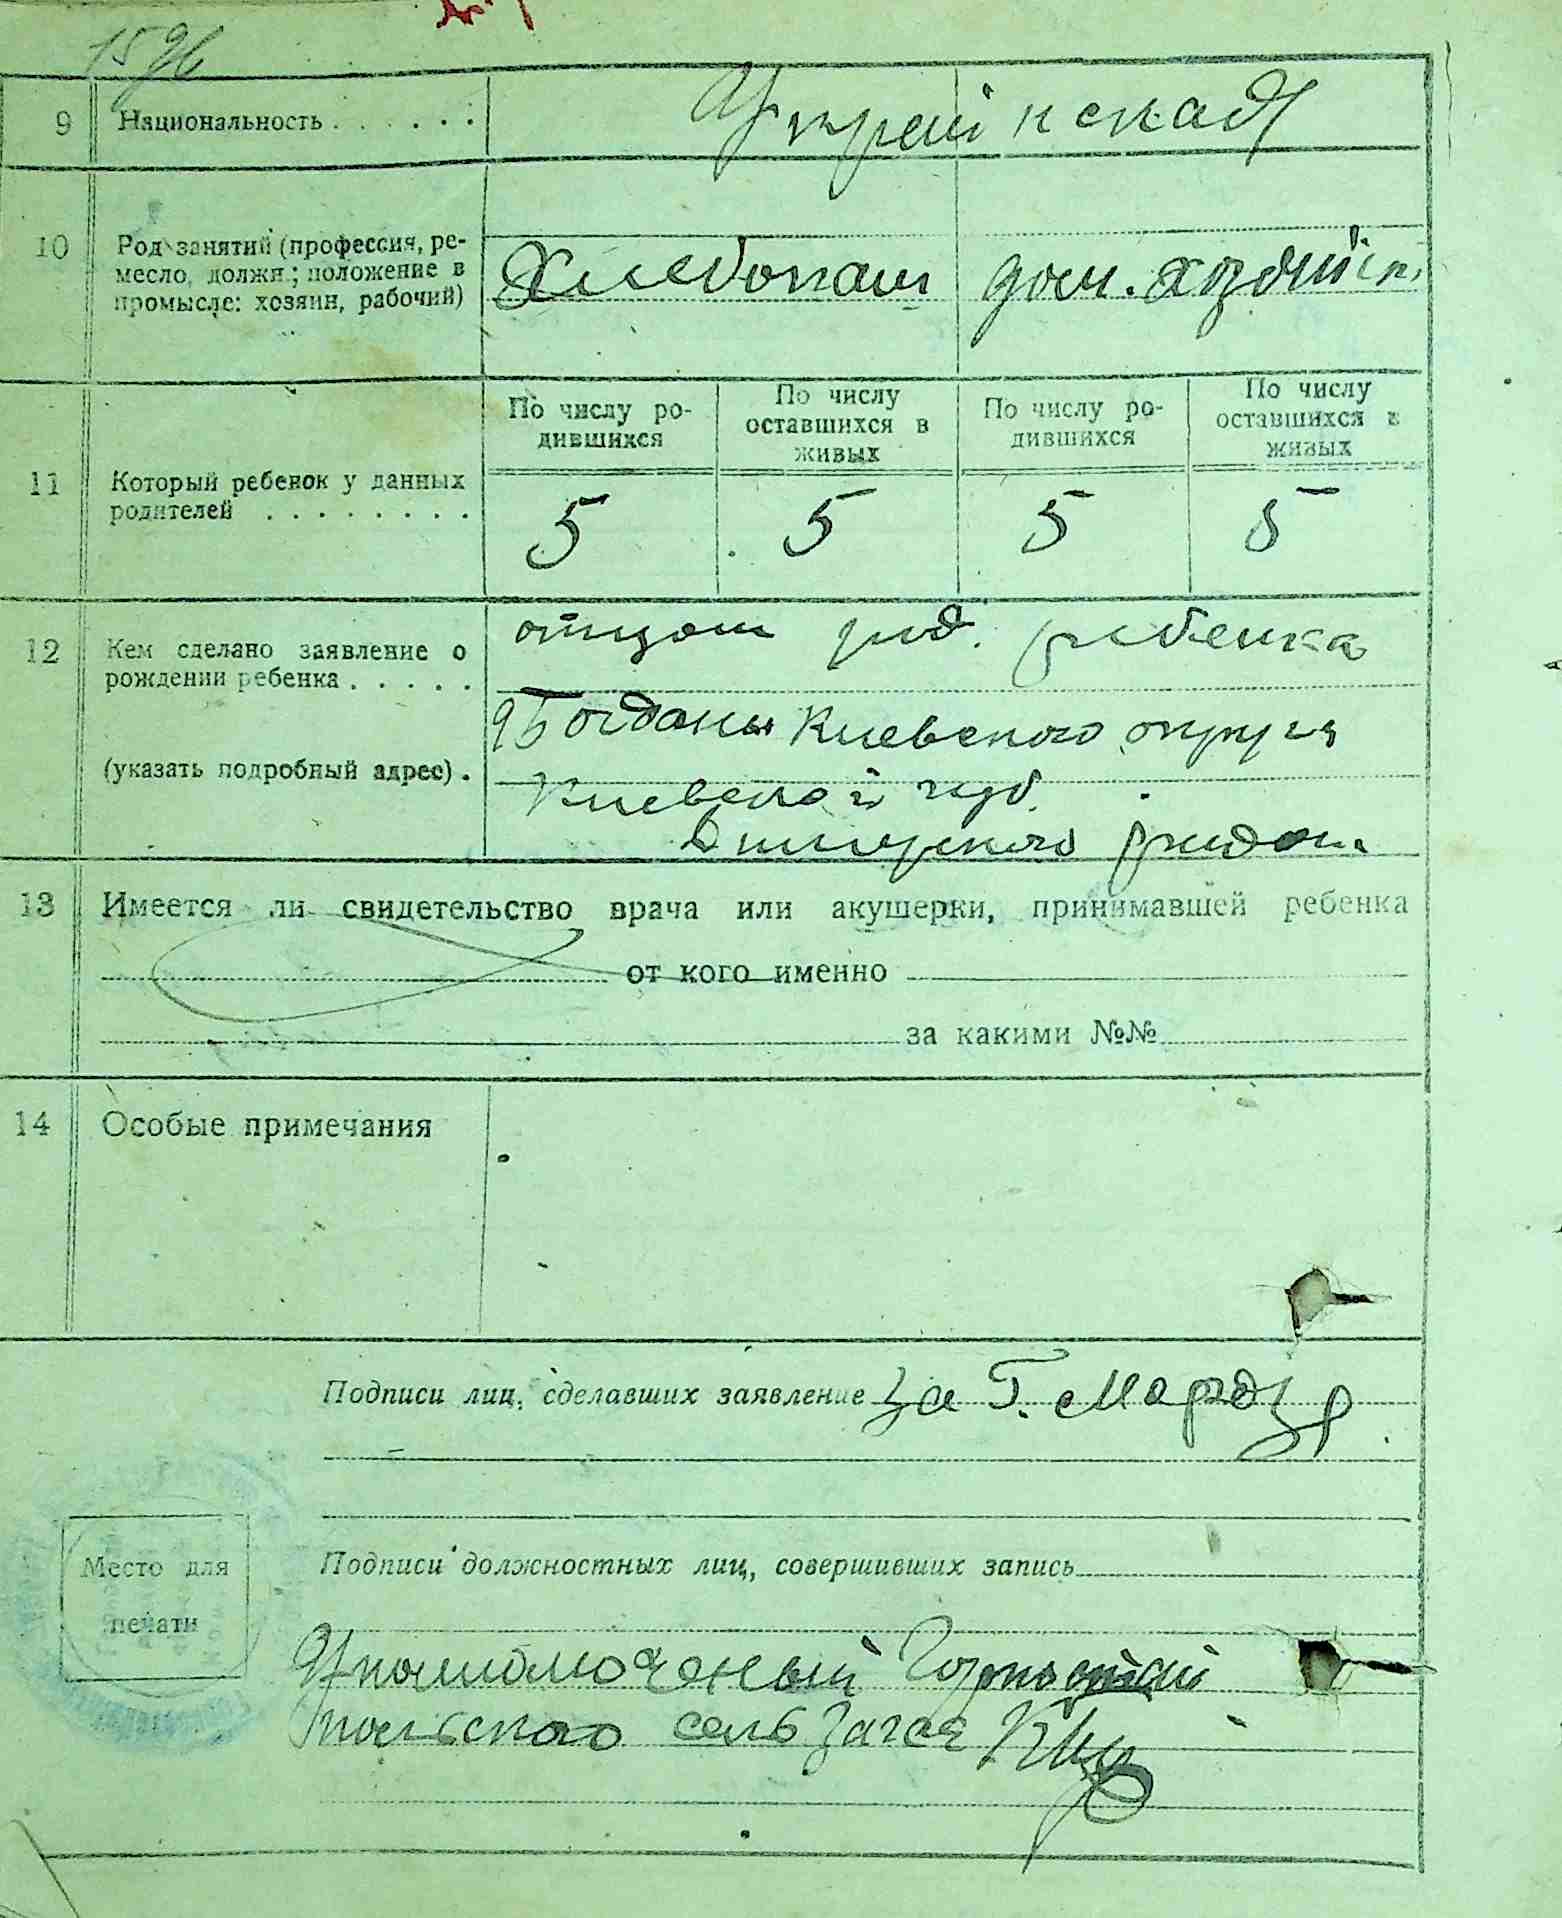 9 Национальность . . . . . .
Украінская
10 Род занятий (профессия, ре-
месло, должн.; положение в
промысле: хозяин, рабочий)
Хлебопаш дом. хозяйк.
11 Который ребенок у данных
родителей . . . . . . . .
По числу ро-
дившихся
По числу
оставшихся в
живых
По числу ро-
дившихся
По числу
оставшихся в
живых
5 5 5 5
12 Кем сделано заявление о
рождении ребенка . . . . .
(указать подробный адрес) .
отцом ребенка
Богданы Киевского округа
Киевской губ.
Дымерского
13 Имеется ли свидетельство врача или акушерки, принимавшей ребенка
от кого именно
за какими №№
14 Особые примечания
Подписи лиц, сделавших заявление за Г.
Место для
печати
Подписи должностных лиц, совершивших запись
сель загса